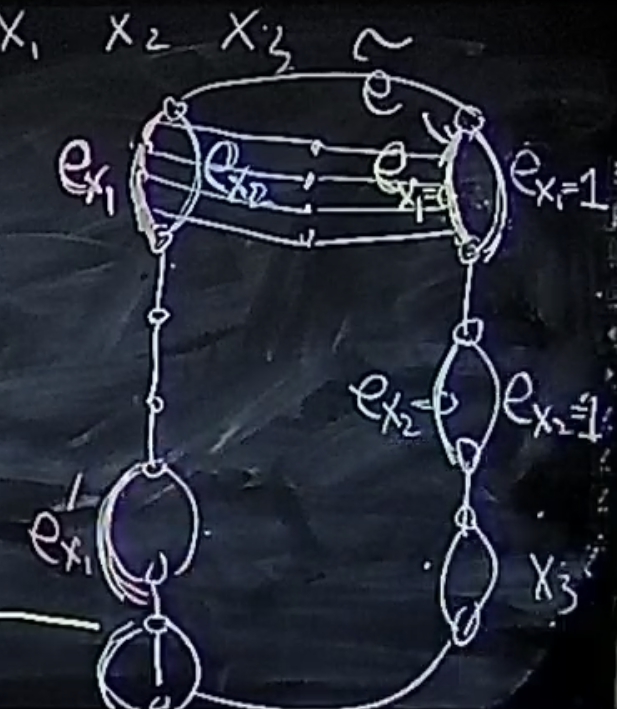 x₁ x₂ x₃
ẽ
e_{x₁} e_{x₂} e_{x₁=0} e_{x₁=1}
e_{x₂=0} e_{x₂=1}
e'_{x₁} x₃